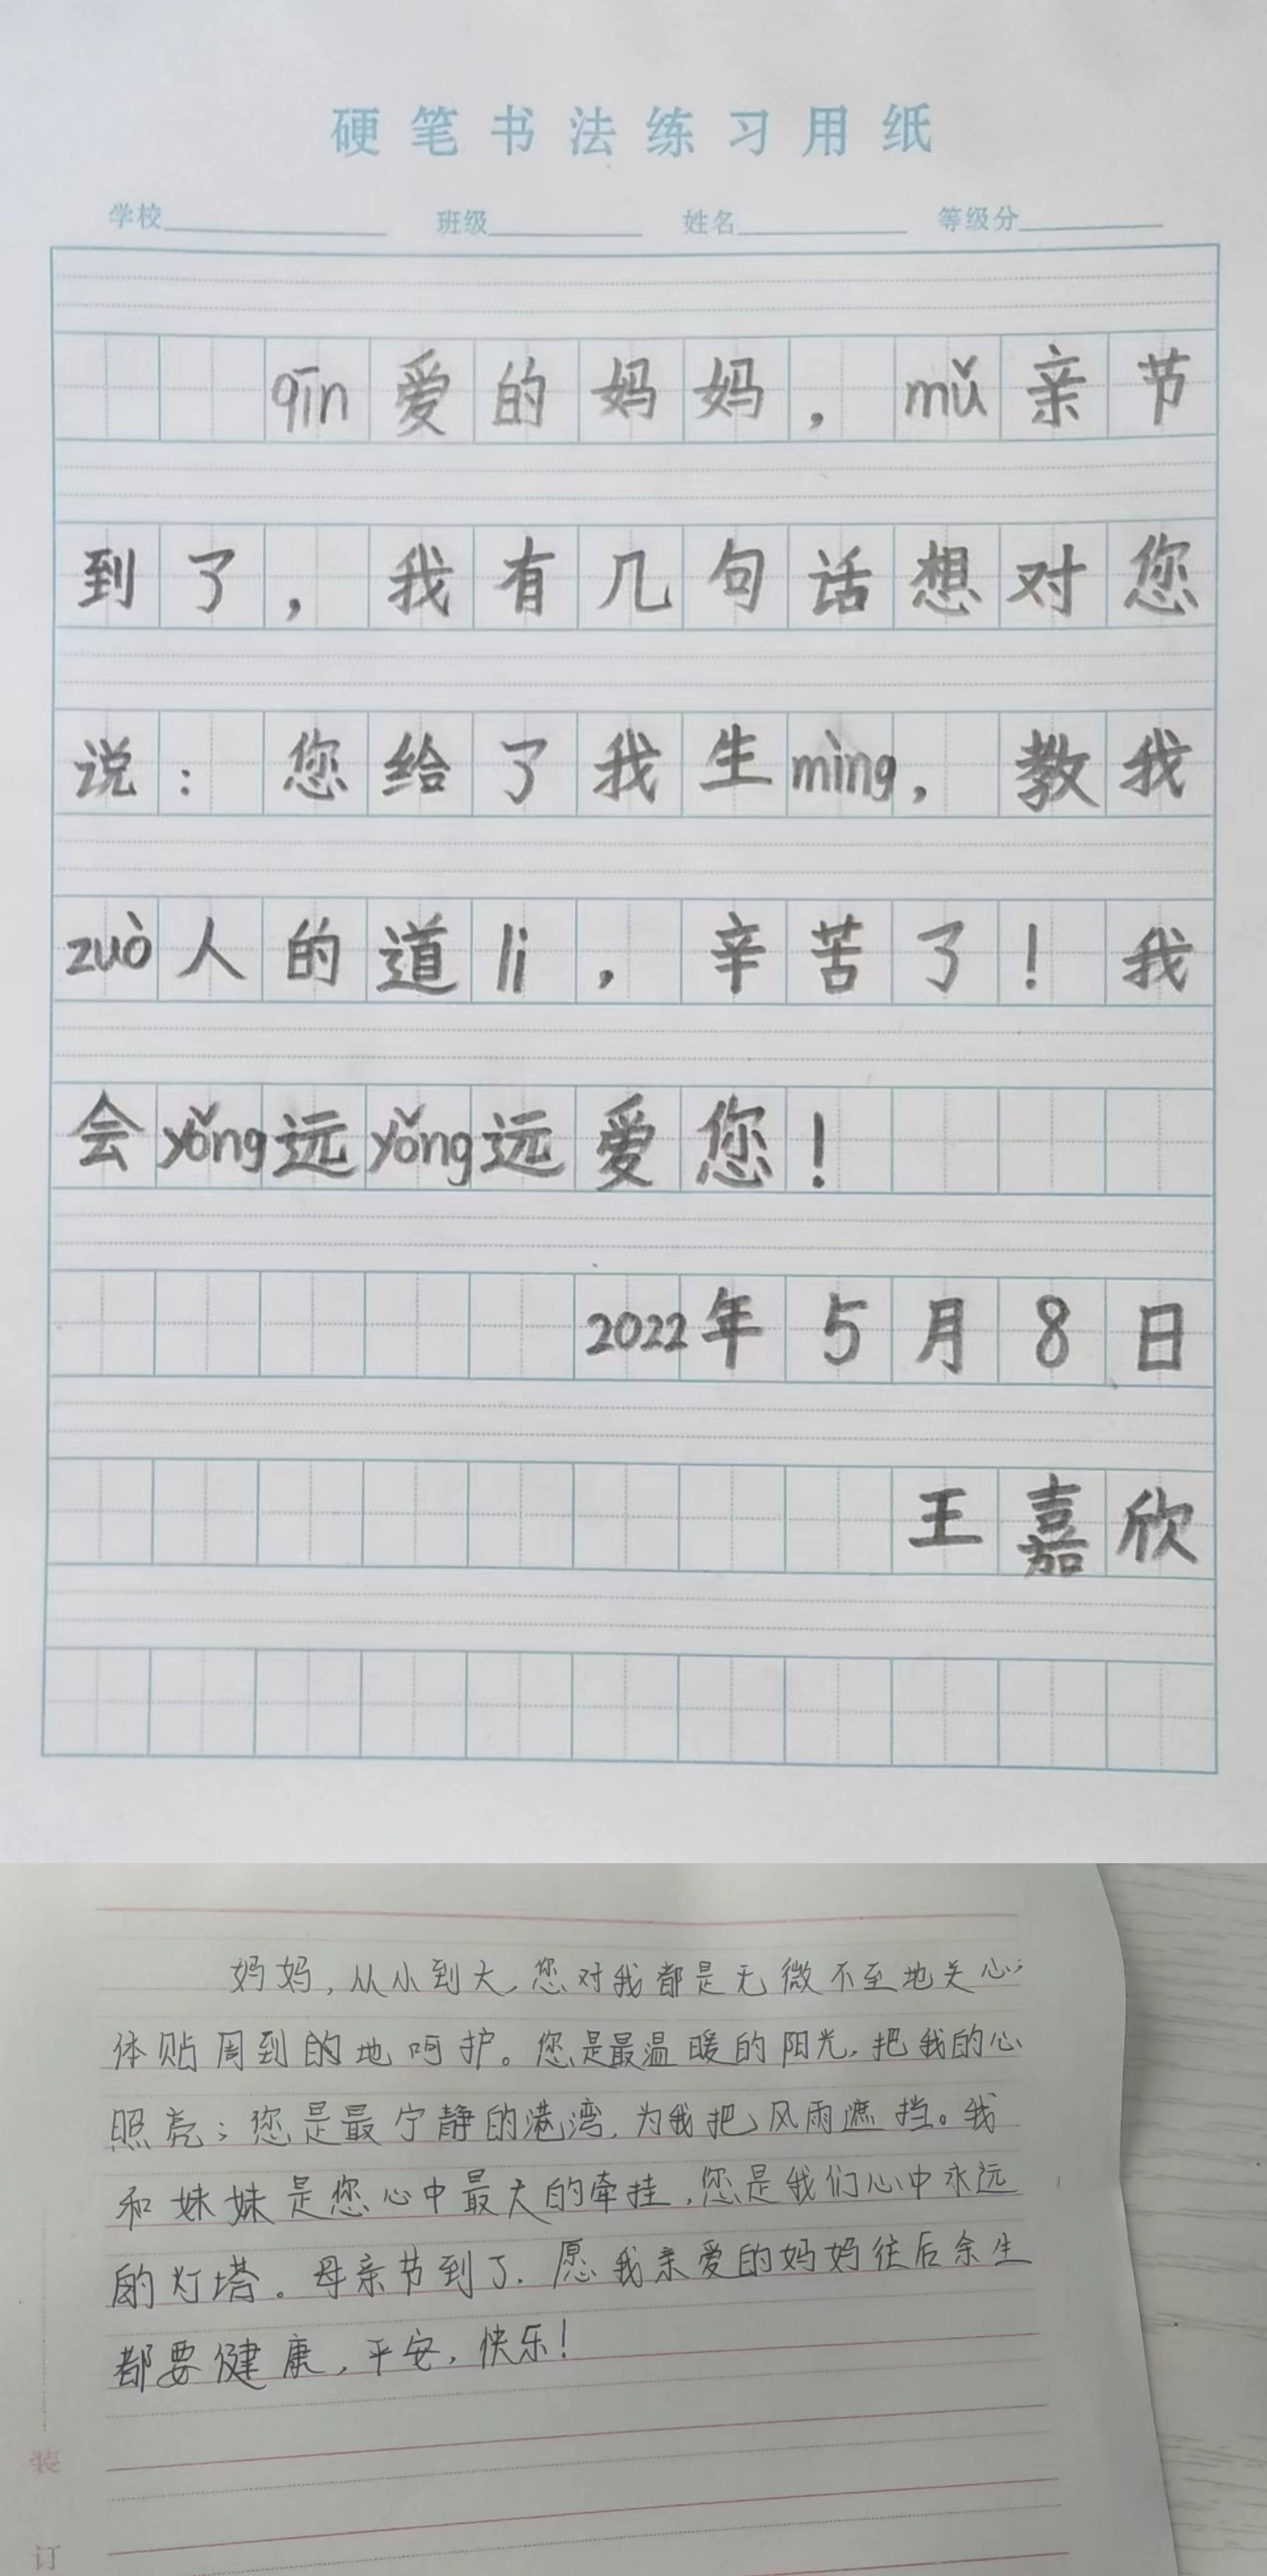 硬笔书法练习用纸
学校 班级 姓名 等级分
qīn爱的妈妈，mǔ亲节
到了，我有几句话想对您
说：您给了我生mìng，教我
zuò人的道li，辛苦了！我
会yǒng远yǒng远爱您！
2022年5月8日
王嘉欣
妈妈，从小到大，您对我都是无微不至地关心，
体贴周到的地呵护。您是最温暖的阳光，把我的心
照亮；您是最宁静的港湾，为我把风雨遮挡。我
和妹妹是您心中最大的牵挂，您是我们心中永远
的灯塔。母亲节到了，愿我亲爱的妈妈往后余生
都要健康，平安，快乐！
装
订